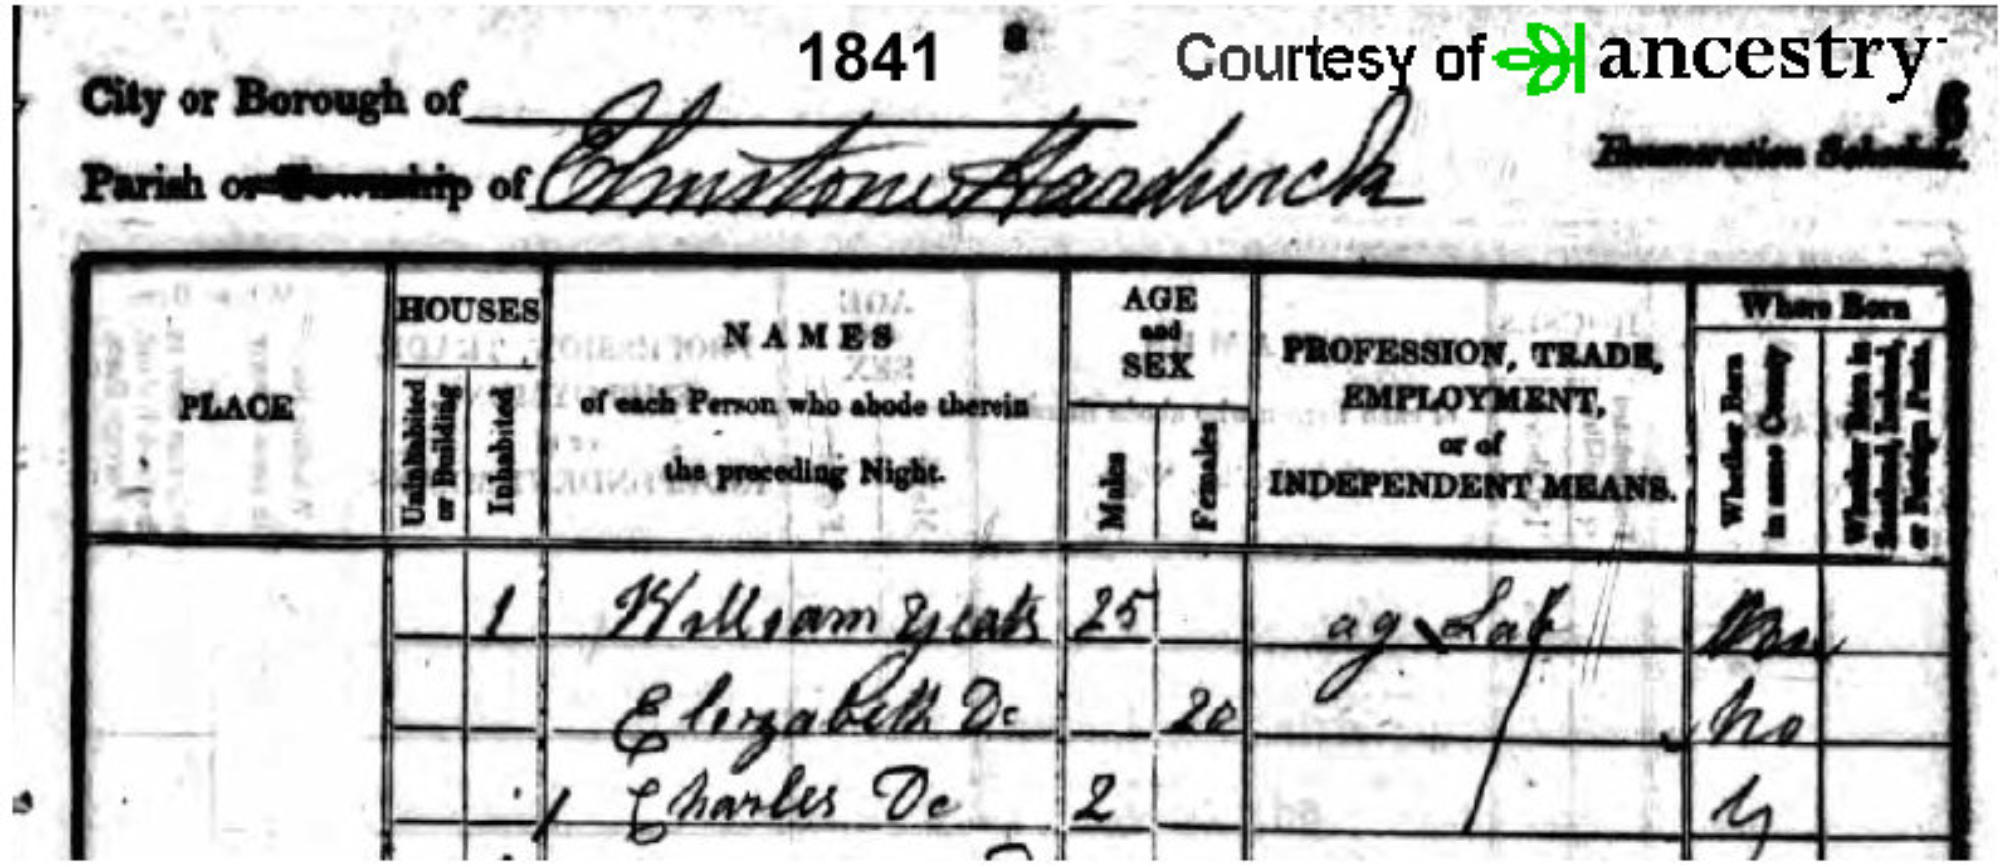 1841
Courtesy of ancestry
6
City or Borough of
Enumeration Schedule.
Parish or Township of Elmstone Hardwick
PLACE
HOUSES
Uninhabited
or Building
Inhabited
NAMES
of each Person who abode therein
the preceding Night.
AGE
and
SEX
Males
Females
PROFESSION, TRADE,
EMPLOYMENT,
or of
INDEPENDENT MEANS.
Where Born
Whether Born
in same County
Whether Born in
Scotland, Ireland,
or Foreign Parts.
1 William Yeats 25 ag Lab
Elizabeth Do 20 No
Charles Do 2 Y